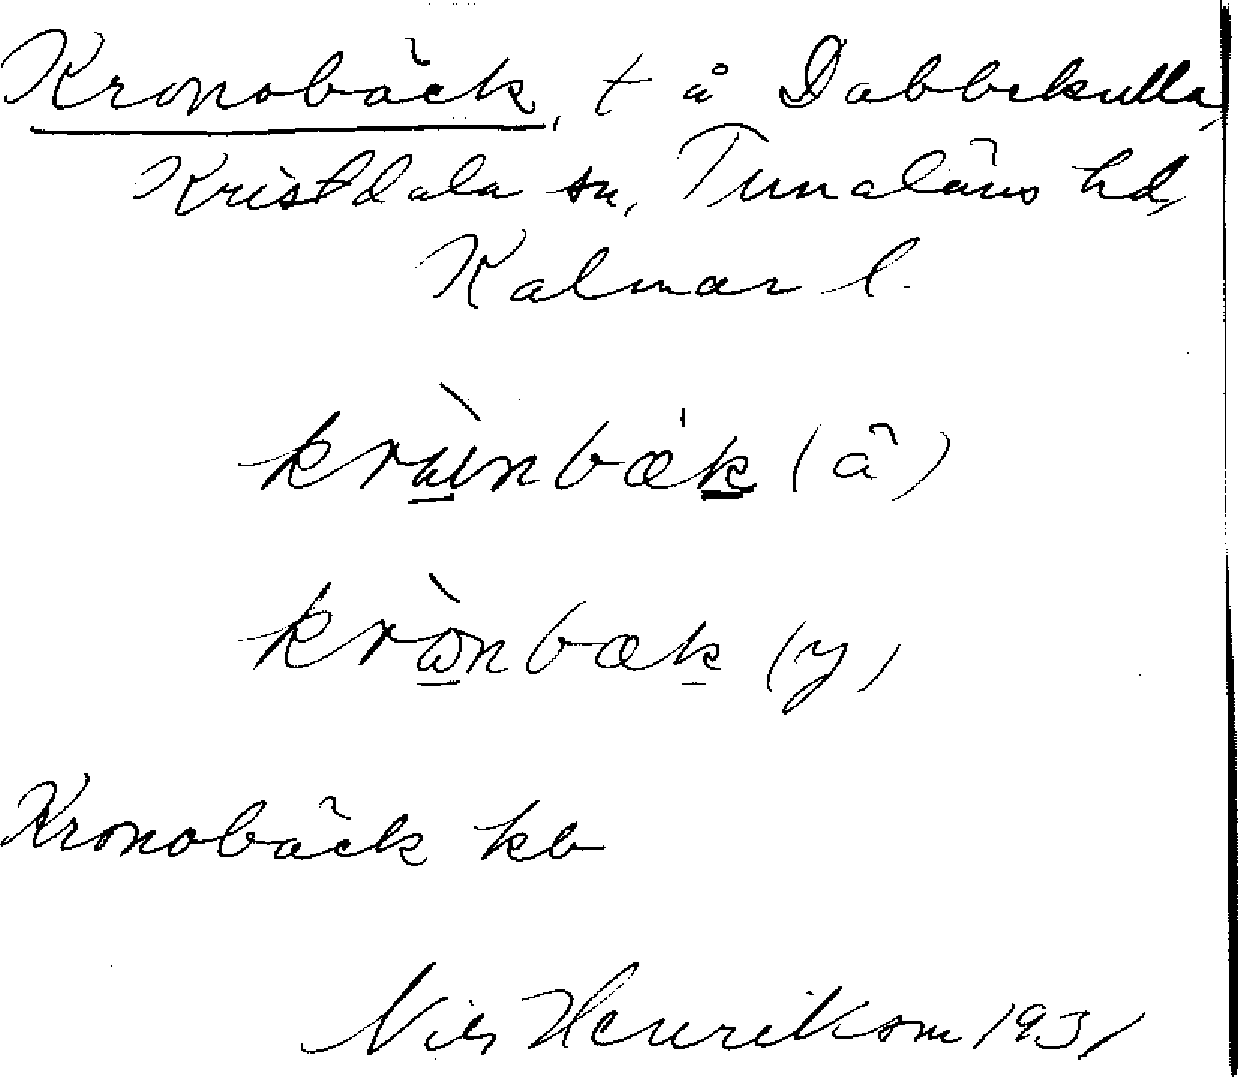 Kronobäck, t å Dabbekulla,
Kristdala sn, Tunaläns hd,
Kalmar l.
(ä)
(y)
Kronobäck kb
Nils Henrikson 1931